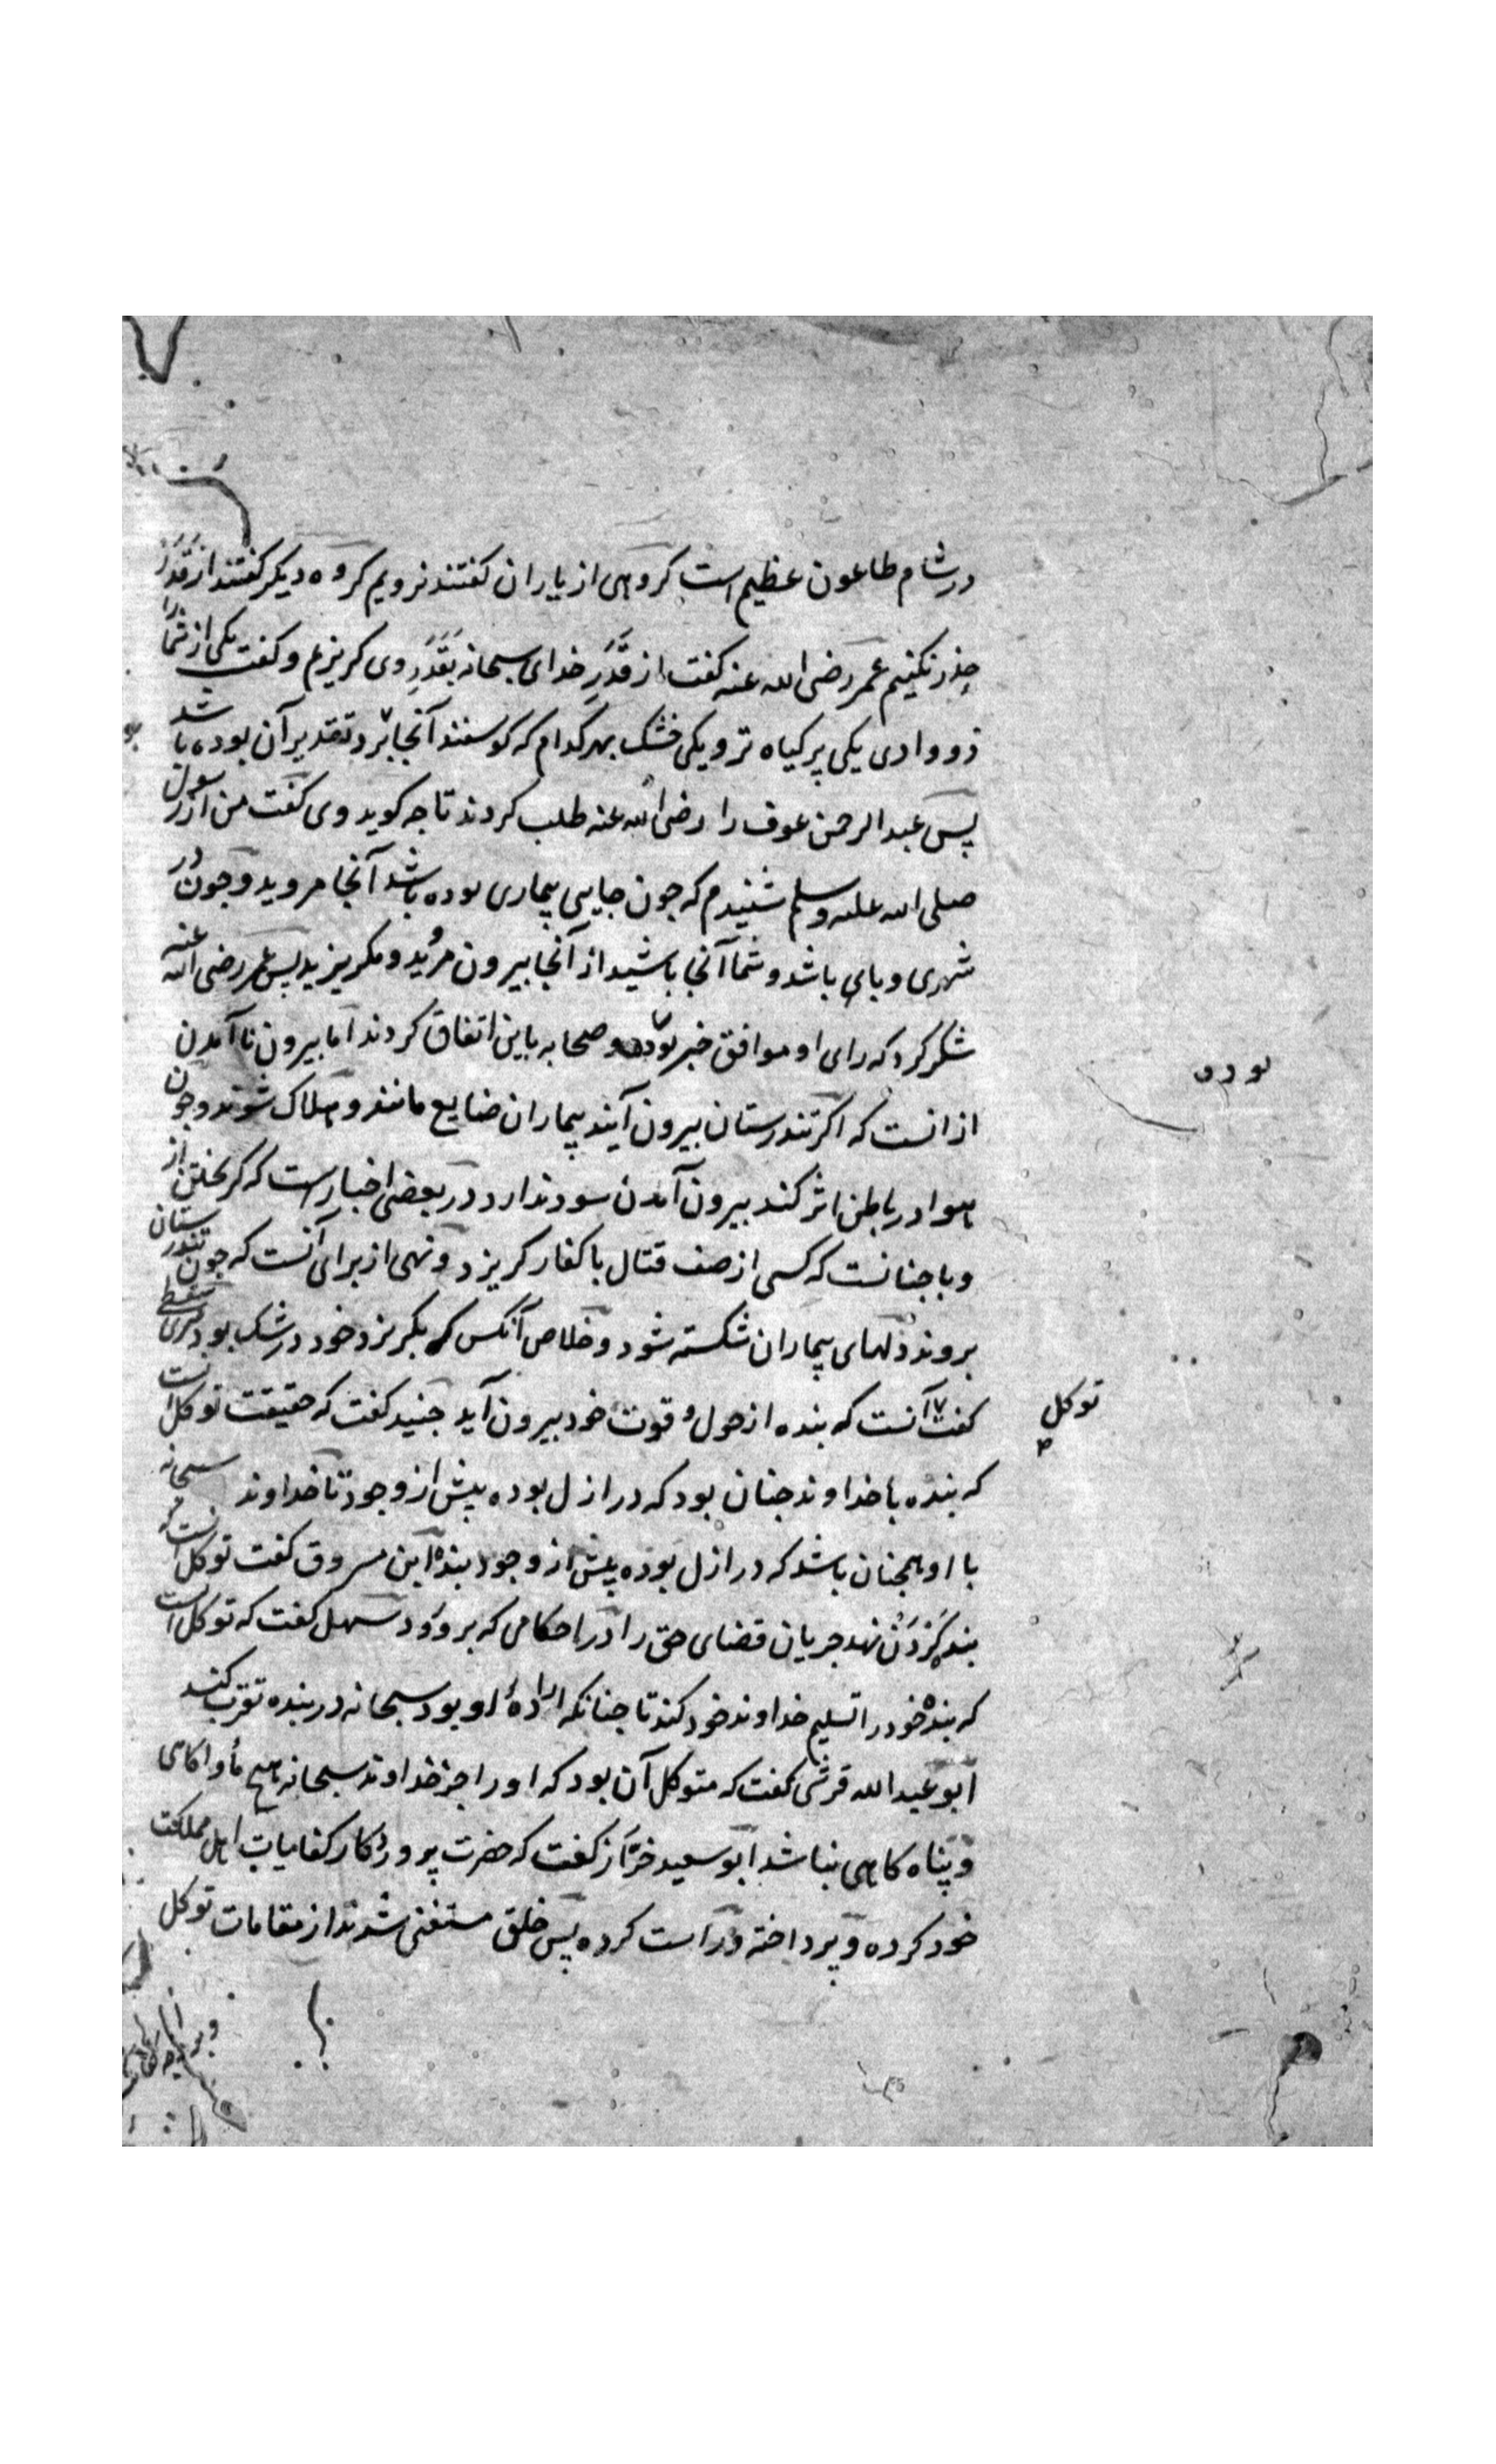 در شام طاعون عظیم است کروهی از یاران کفتند نرویم کروه دیکر کفتند از قَدَر
حذر نکنیم عمر رضی الله عنه کفت از قَدَرِ خدای سبحانه بقَدَرِ وی کریزیم و کفت یکی از شما را
دو وادی یکی پر کیاه تر و یکی خشک بهر کدام که کوسفند آنجا بَرد تقدیر آن بوده باشد
پس عبدالرحمن عوف را رضی الله عنه طلب کردند تا چه کوید وی کفت من از رسول
صلی الله علیه وسلم شنیدم که جون جایی بیماری بوده باشد آنجا مروید و جون در
شهری وبای باشد و شما آنجا باشید از آنجا بیرون مروید و مکریزید پس عمر رضی الله عنه
شکر کرد که رای او موافق خبر بود و صحابه باین اتفاق کردند اما بیرون ناآمدن
از انست که اکر تندرستان بیرون آیند بیماران ضایع مانند و هلاک شوند و جون
هوا در باطن اثر کند بیرون آمدن سود ندارد در بعضی اخبار است که کریختن از
وبا جنانست که کسی از صف قتال با کفار کریزد و نهی از برای آنست که جون تندرستان
بروند دلهای بیماران شکسته شود و خلاص آنکس که بکریزد خود در شک بود سری سقطی
کفت آنست که بنده از حول و قوت خود بیرون آید جنید کفت که حقیقت توکل انست
توکل
که بنده با خداوند جنان بود که در ازل بوده پیش از وجود تا خداوند سبحانه
با او همجنان باشد که در ازل بوده پیش از وجود بنده ابن مسروق کفت توکل انست که
بنده کردن نهد جریان قضای حق را در احکامی که برو رود سهل کفت که توکل انست
که بنده خود را تسلیم خداوند خود کند تا جنانکه ارادهٔ او بود سبحانه در بنده تصرف کند
ابو عبد الله قرشی کفت که متوکل آن بود که او را جز خداوند سبحانه هیچ مأواکاهی
و پناه کاهی نباشد ابو سعید خرّاز کفت که حضرت پروردکار کفایات اهل مملکت
خود کرده و پرداخته و راست کرده پس خلق مستغنی شدند از مقامات توکل